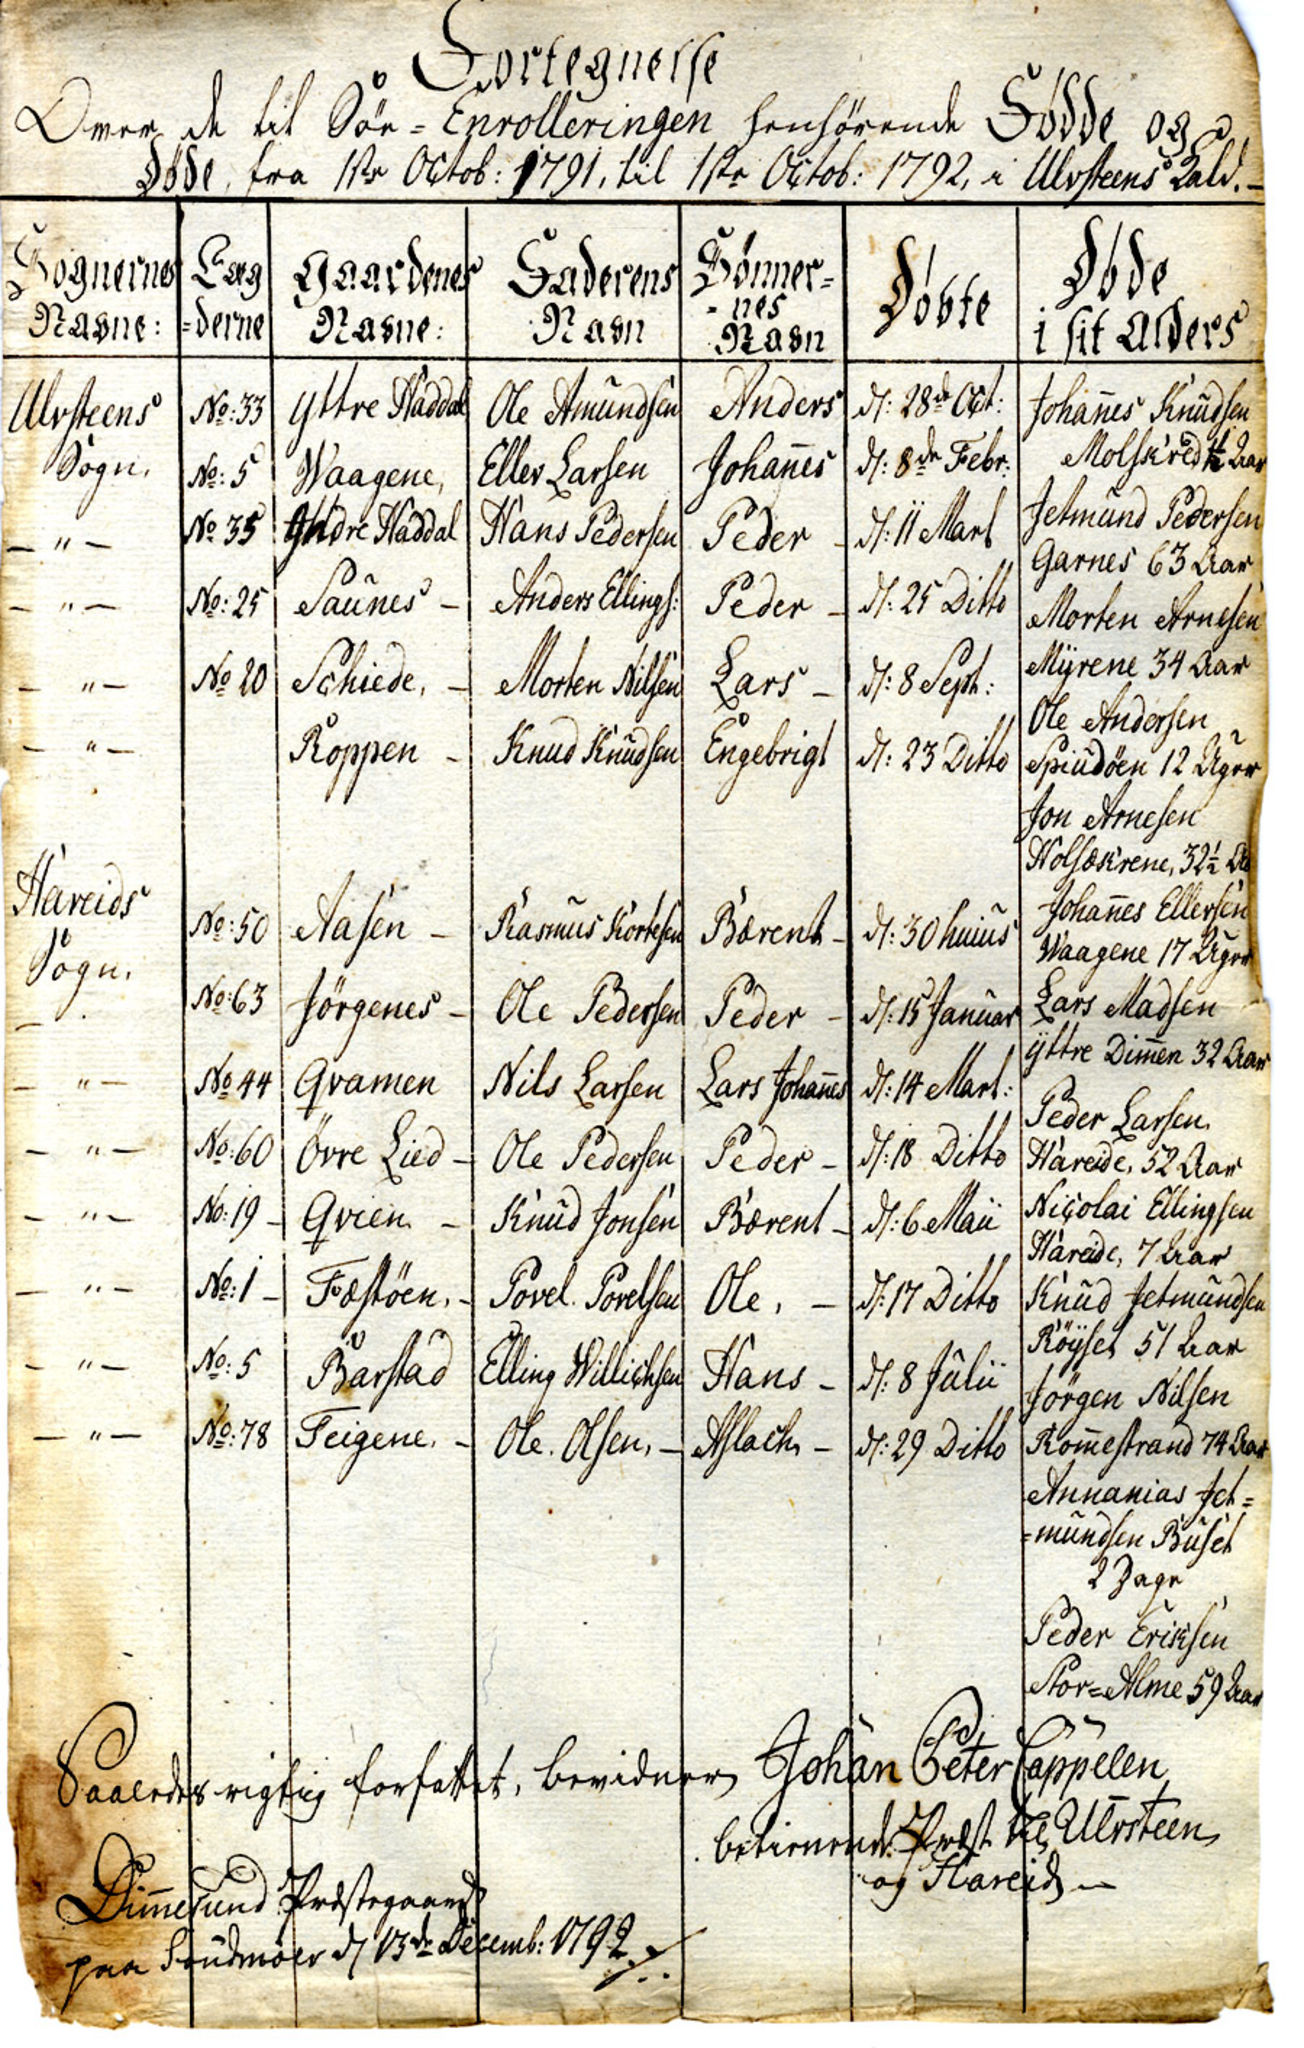 Fortegnelse
Over de til Söe=Enrolleringen henhörende Födde og
Døde, fra 1ste Octob: 1791, til 1ste Octob: 1792, i Ulvsteens Kald.
Sognernes Navne: | Læg=derne | Gaardenes Navne: | Faderens Navn | Sønner=nes Navn | Døbte | Døde i sit Alders
Ulvsteens Sogn. | No: 33 | Yttre Haddal | Ole Amundsen | Anders | d: 28de Oct:
No: 5 | Waagene, | Eller Larsen | Johan̄es | d: 8de Febr:
— " — | No 35 | Yndre Haddal | Hans Pedersen | Peder – | d: 11 Mart
— " — | No: 25 | Saunes – | Anders Ellings: | Peder – | d: 25 Ditto
— " — | No 20 | Schiede, – | Morten Nilsen | Lars – | d: 8 Sept:
— " — | Koppen – | Knud Knudsen | Engebrigt | d: 23 Ditto
Hareids Sogn. | No: 50 | Aasen – | Rasmus Kortesen | Bærent – | d: 30 huius
— | No: 63 | Jörgenes – | Ole Pedersen | Peder – | d: 15 Januar
— " — | No 44 | Qvamen | Nils Larsen | Lars Johan̄es | d: 14 Mart:
— " — | No: 60 | Övre Lied – | Ole Pedersen | Peder – | d: 18 Ditto
— " — | No: 19 – | Qvien – | Knud Jonsen | Bærent – | d: 6 Maii
— " — | No: 1 – | Fæstöen, – | Povel Povelsen | Ole, – | d: 17 Ditto
— " — | No: 5 | Barstad | Elling Willichsen | Hans – | d: 8 Julii
— " — | No: 78 | Teigene, – | Ole Olsen, – | Aslach – | d: 29 Ditto
Johan̄es Knudsen
Molskred Aar
Jetmund Pedersen
Garnes 63 Aar
Morten Arnesen
Myrene 34 Aar
Ole Andersen
Spiudöen 12 Uger
Jon Arnesen
Holsækrene, 32½
Johan̄es Ellersen
Waagene 17 Uger
Lars Madsen
Yttre Dim̄en 32 Aar
Peder Larsen
Hareide, 52 Aar
Nicolai Ellingsen
Hareide, 7 Aar
Knud Jetmundsen
Röyset 51 Aar
Jörgen Nilsen
Rom̄estrand 74 Aar
Annanias Jet=
=mundsen Buset
2 Dage
Peder Eriksen
Stor=Alme 59 Aar
Saaledes rigtig forfattet, bevidner Johan Peter Cappelen,
betienende Præst til Ulvsteen
og Hareid –
Dim̄esund Præstegaard
paa Sundmöer d 13de Decemb: 1792.